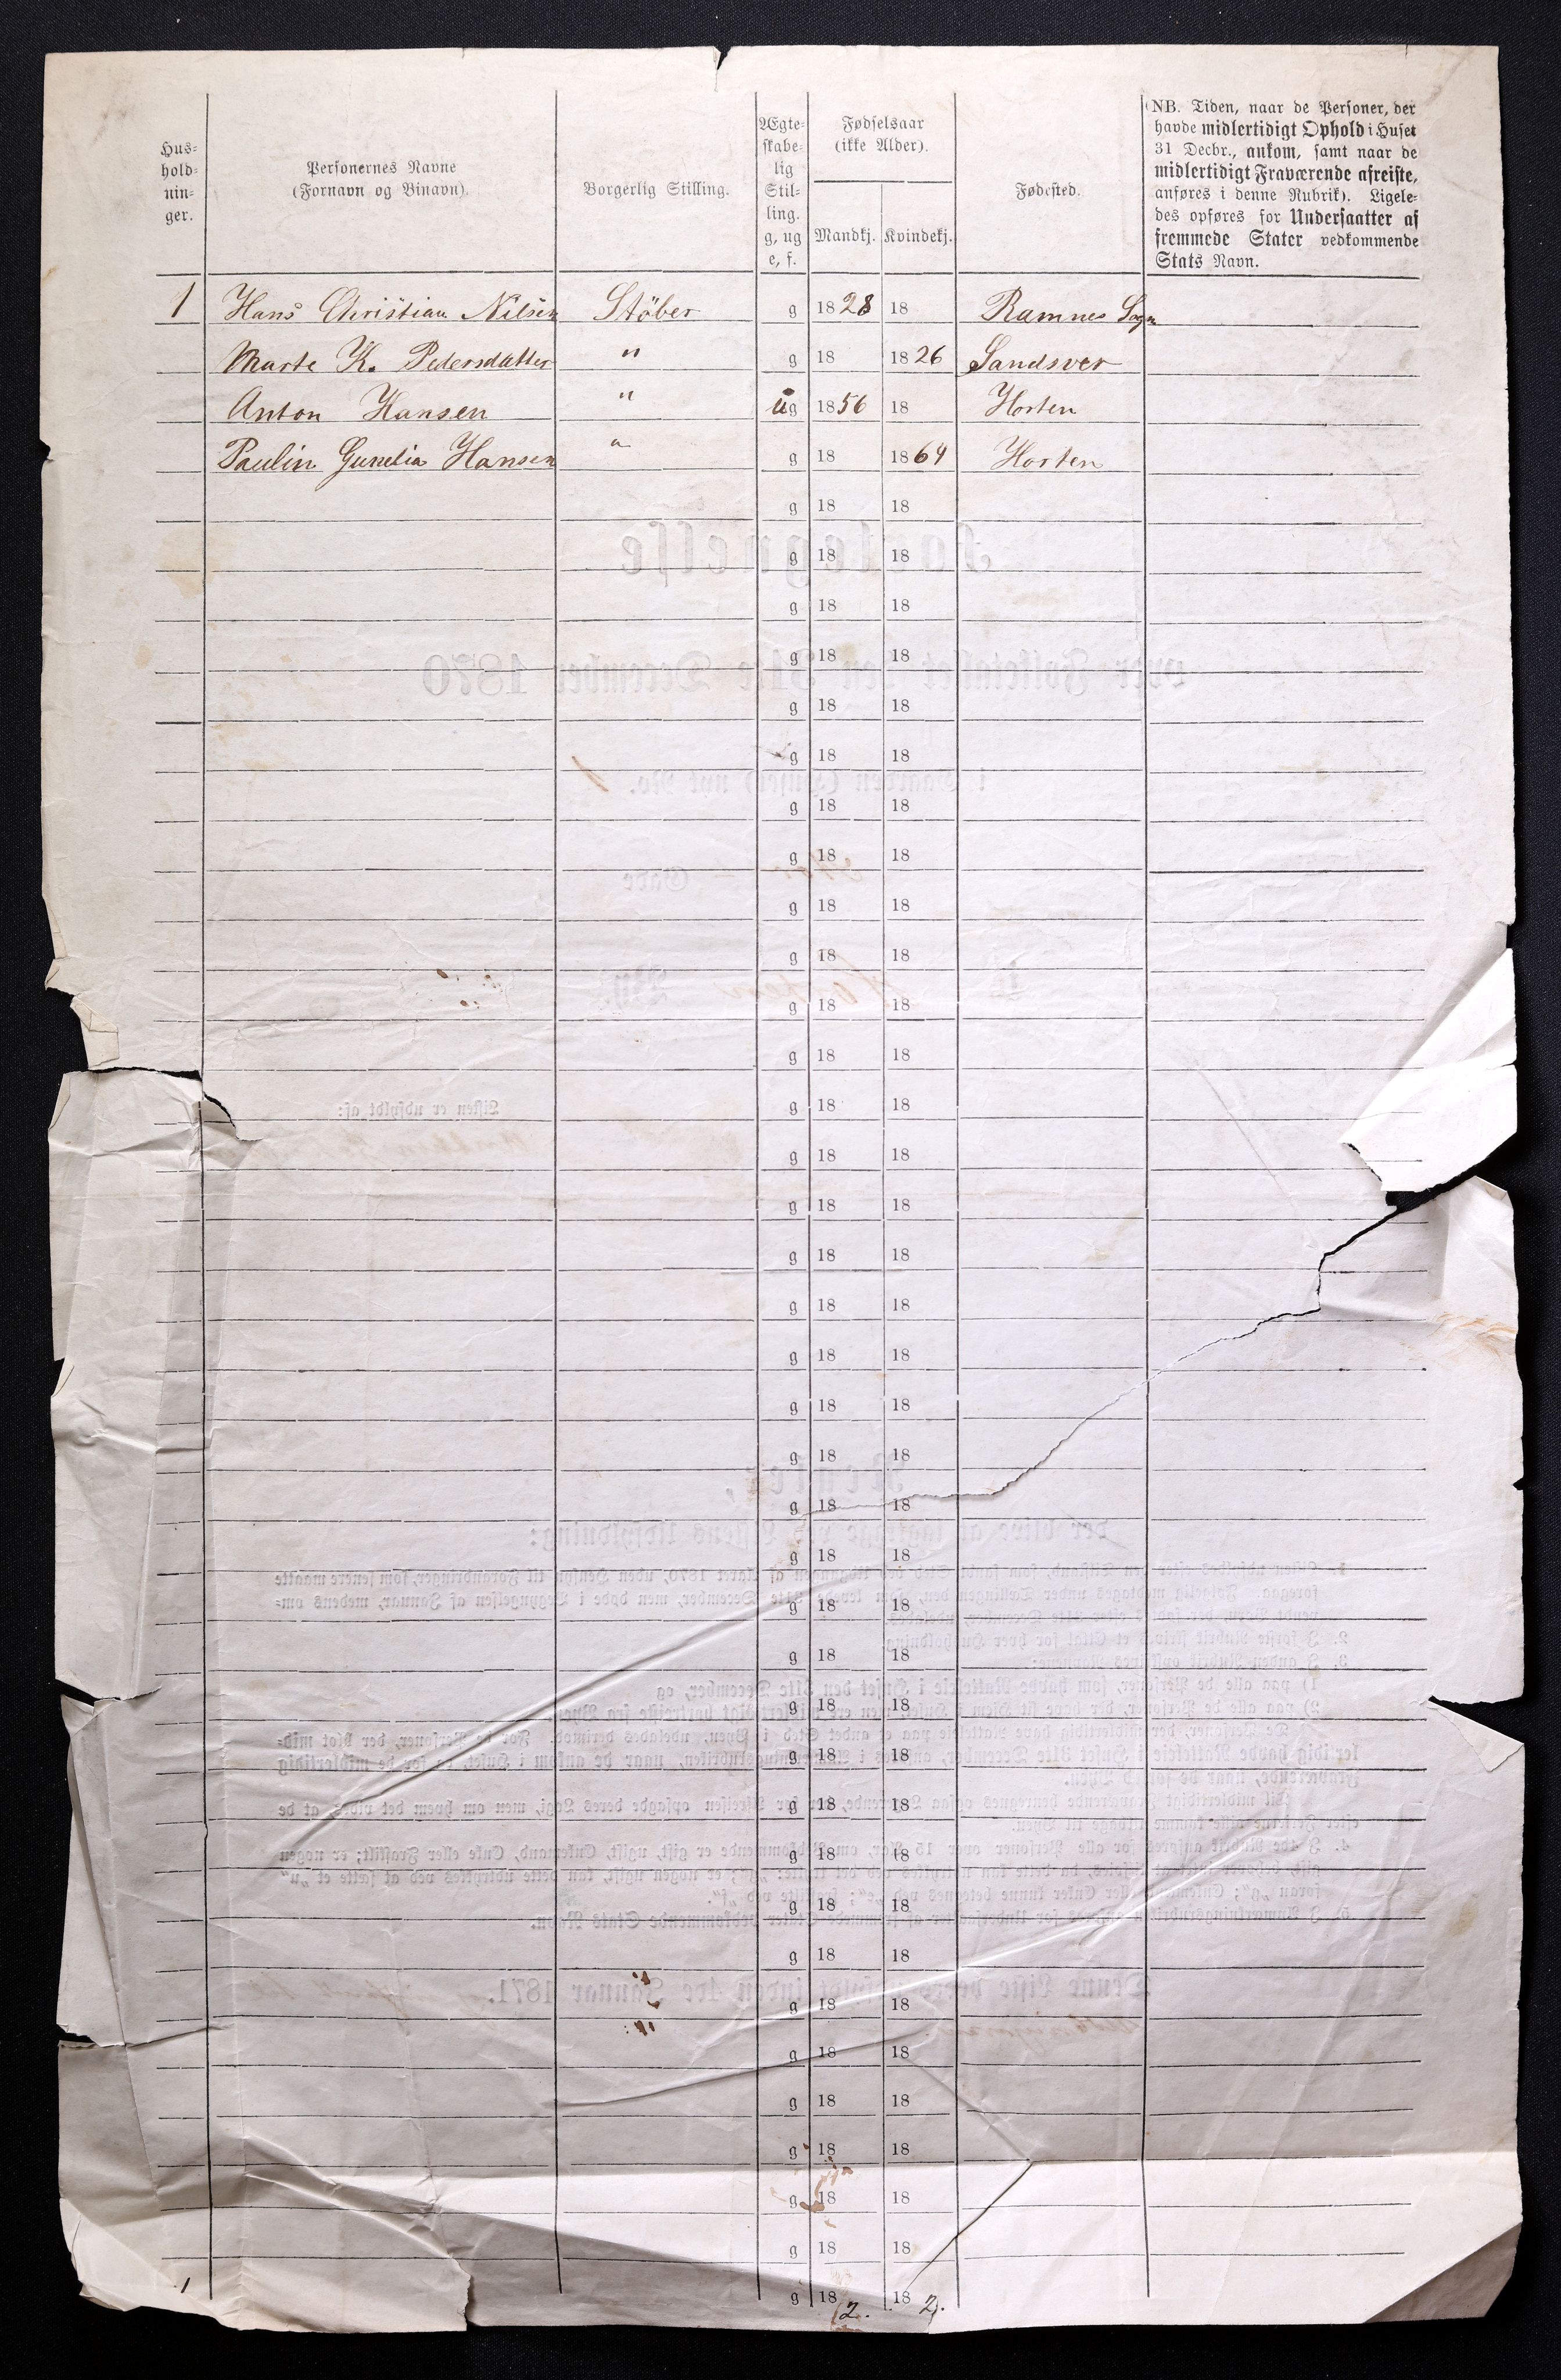 Hus=
hold=
nin=
ger.
Personernes Navne
(Fornavn og Binavn).
Borgerlig Stilling.
Ægte=
skabe=
lig
Stil=
ling.
g, ug
e, f.
Fødselsaar
(ikke Alder).
Mandkj.
Kvindekj.
Fødested.
NB. Tiden, naar de Personer, der
havde midlertidigt Ophold i Huset
31 Decbr., ankom, samt naar de
midlertidigt Fraværende afreiste,
anføres i denne Rubrik). Ligele=
des opføres for Undersaatter af
fremmede Stater vedkommende
Stats Navn.
1 Hans Christian Nilsen Støber g 1828 18 Ramnes Sogn
Marte K. Pedersdatter " g 18 1826 Sandsver
Anton Hansen " ug 1856 18 Horten
Paulin Gunelia Hansen " g 18 1864 Horten
g 18 18
g 18 18
g 18 18
g 18 18
g 18 18
g 18 18
g 18 18
g 18 18
g 18 18
g 18 18
g 18 18
g 18 18
g 18 18
g 18 18
g 18 18
g 18 18
g 18 18
g 18 18
g 18 18
g 18 18
g 18 18
g 18 18
g 18 18
g 18 18
g 18 18
g 18 18
g 18 18
g 18 18
g 18 18
g 18 18
g 18 18
g 18 18
g 18 18
g 18 18
g 18 18
g 18 18
g 18 18
1 2. 2.